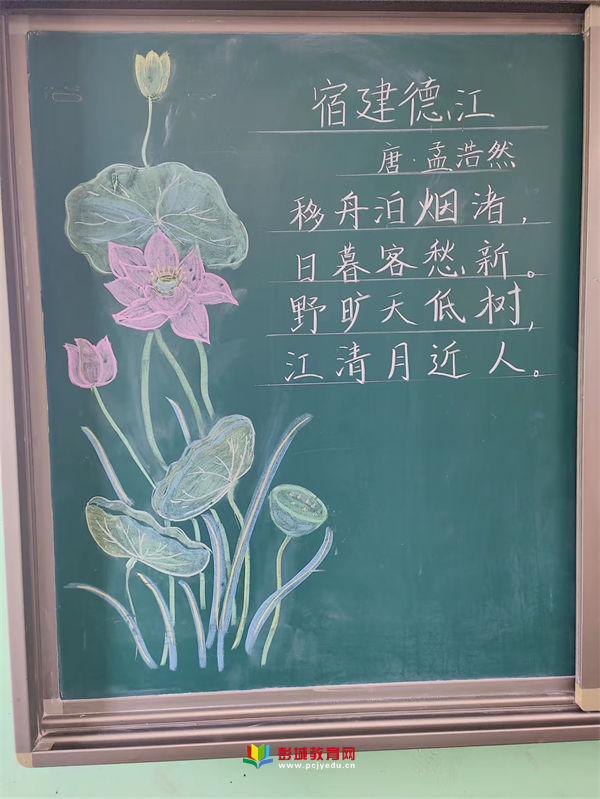 宿建德江
唐·孟浩然
移舟泊烟渚，
日暮客愁新。
野旷天低树，
江清月近人。
彭城教育网
www.pcjyedu.cn